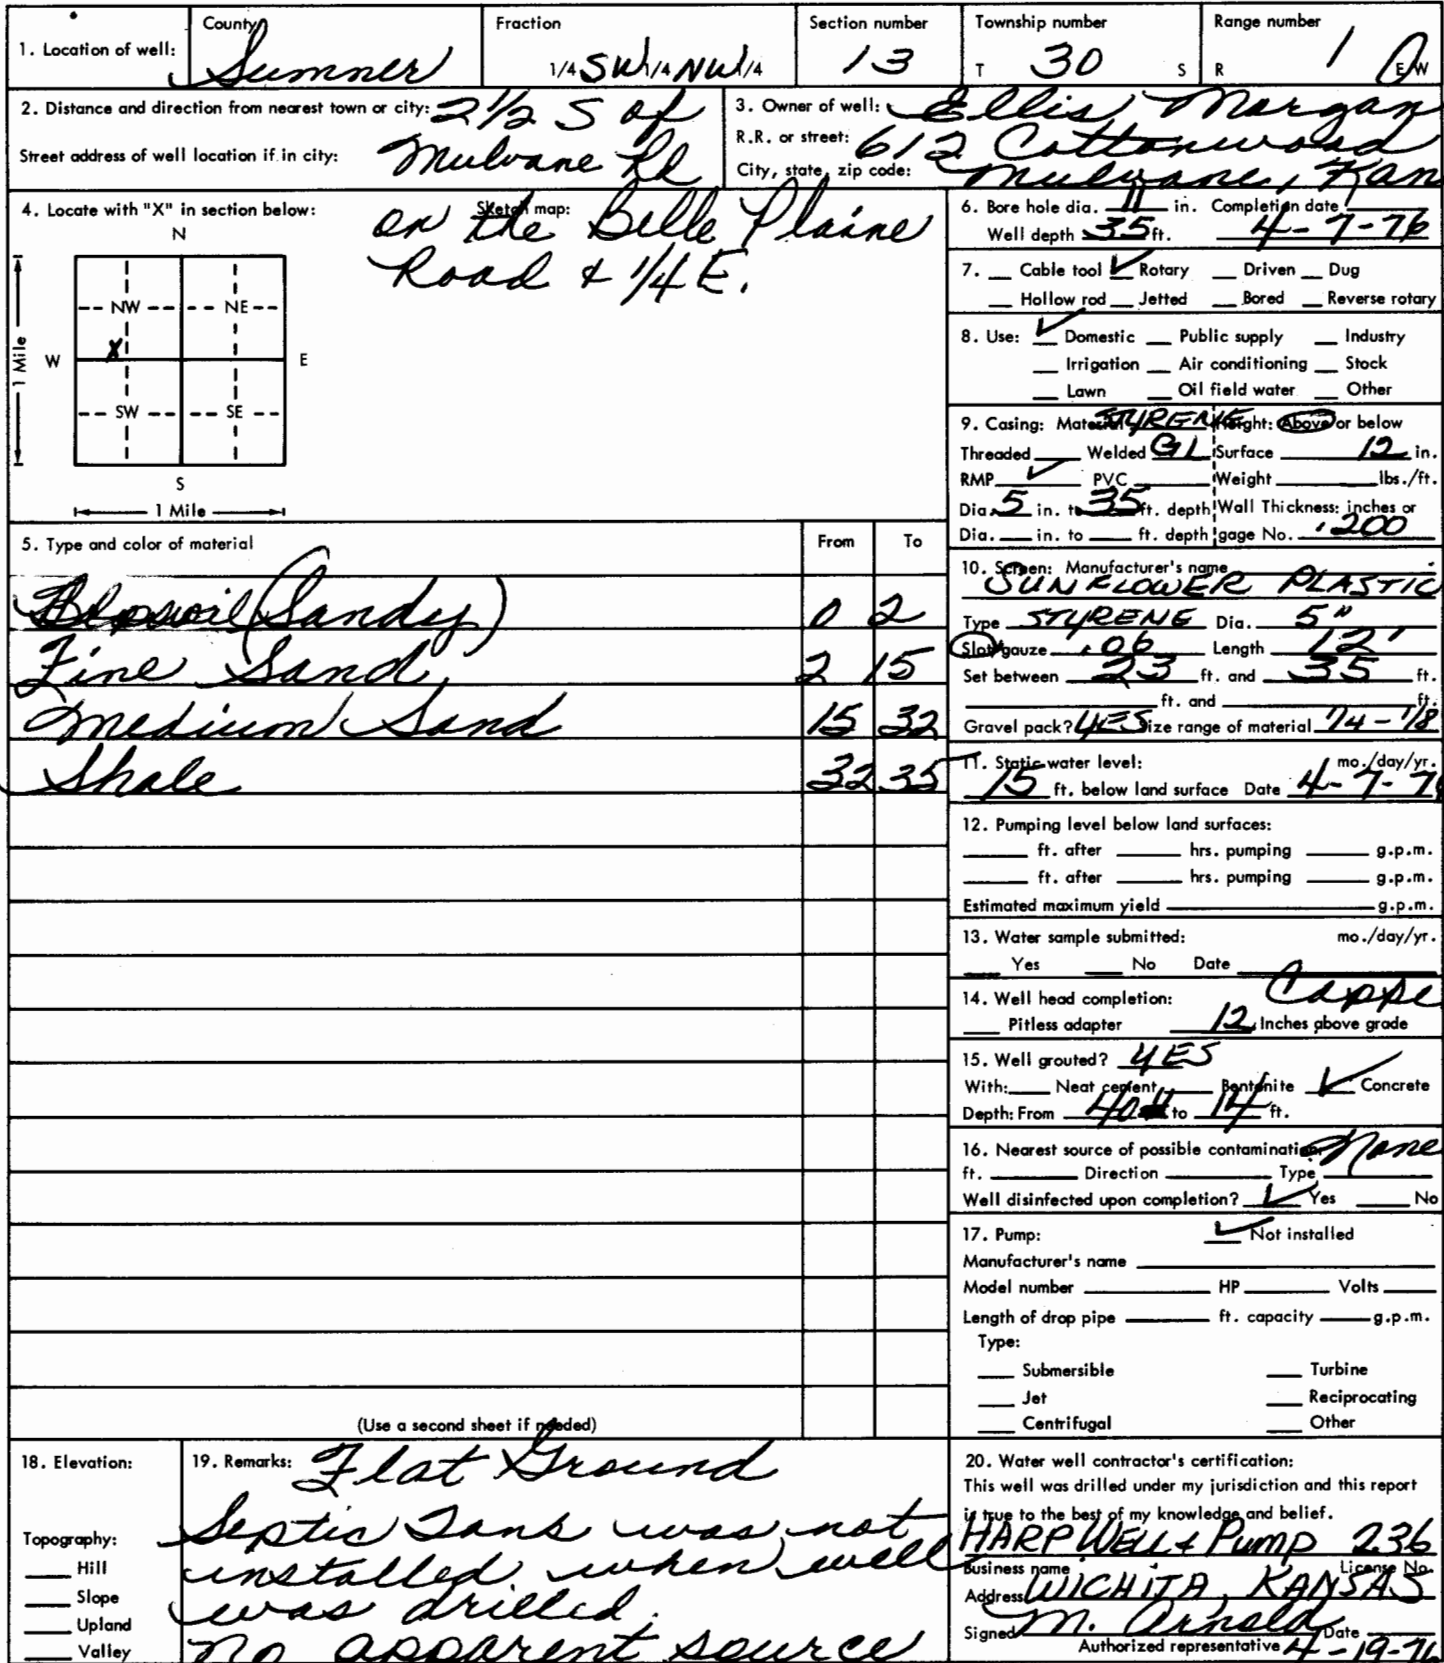 1. Location of well: County Sumner Fraction 1/4 SW 1/4 NW 1/4 Section number 13 Township number T 30 S Range number R 1 E/W
2. Distance and direction from nearest town or city: 2 1/2 S of
Street address of well location if in city: Mulvane Rd
3. Owner of well: Ellis Morgan
R.R. or street: 612 Cottonwood
City, state, zip code: Mulvane, Kan
4. Locate with "X" in section below:
Sketch map:
on the Belle Plaine
Road & 1/4 E.
N
NW NE
X
W E
SW SE
S
1 Mile
1 Mile
5. Type and color of material From To
Topsoil (Sandy) 0 2
Fine Sand 2 15
Medium Sand 15 32
Shale 32 35
(Use a second sheet if needed)
6. Bore hole dia. 11 in. Completion date
Well depth 35 ft. 4-7-76
7. Cable tool ✓ Rotary Driven Dug
Hollow rod Jetted Bored Reverse rotary
8. Use: ✓ Domestic Public supply Industry
Irrigation Air conditioning Stock
Lawn Oil field water Other
9. Casing: Material STYRENE Height: Above or below
Threaded Welded GL Surface 12 in.
RMP ✓ PVC Weight lbs./ft.
Dia. 5 in. to 35 ft. depth Wall Thickness: inches or
Dia. in. to ft. depth gage No. .200
10. Screen: Manufacturer's name
SUNFLOWER PLASTIC
Type STYRENE Dia. 5"
Slot/gauze .06 Length 12'
Set between 23 ft. and 35 ft.
ft. and ft.
Gravel pack? YES Size range of material 1/4 - 1/8
11. Static water level: mo./day/yr.
15 ft. below land surface Date 4-7-7
12. Pumping level below land surfaces:
ft. after hrs. pumping g.p.m.
ft. after hrs. pumping g.p.m.
Estimated maximum yield g.p.m.
13. Water sample submitted: mo./day/yr.
Yes No Date
14. Well head completion: Cappe
Pitless adapter 12 Inches above grade
15. Well grouted? YES
With: Neat cement Bentonite ✓ Concrete
Depth: From 40" to 14 ft.
16. Nearest source of possible contamination: None
ft. Direction Type
Well disinfected upon completion? ✓ Yes No
17. Pump: ✓ Not installed
Manufacturer's name
Model number HP Volts
Length of drop pipe ft. capacity g.p.m.
Type:
Submersible Turbine
Jet Reciprocating
Centrifugal Other
18. Elevation:
Topography:
Hill
Slope
Upland
Valley
19. Remarks: Flat Ground
Septic Tank was not
installed when well
was drilled.
no apparent source
20. Water well contractor's certification:
This well was drilled under my jurisdiction and this report
is true to the best of my knowledge and belief.
HARP WELL & PUMP 236
Business name License No.
Address WICHITA, KANSAS
Signed M. Arnold Date
Authorized representative 4-19-76